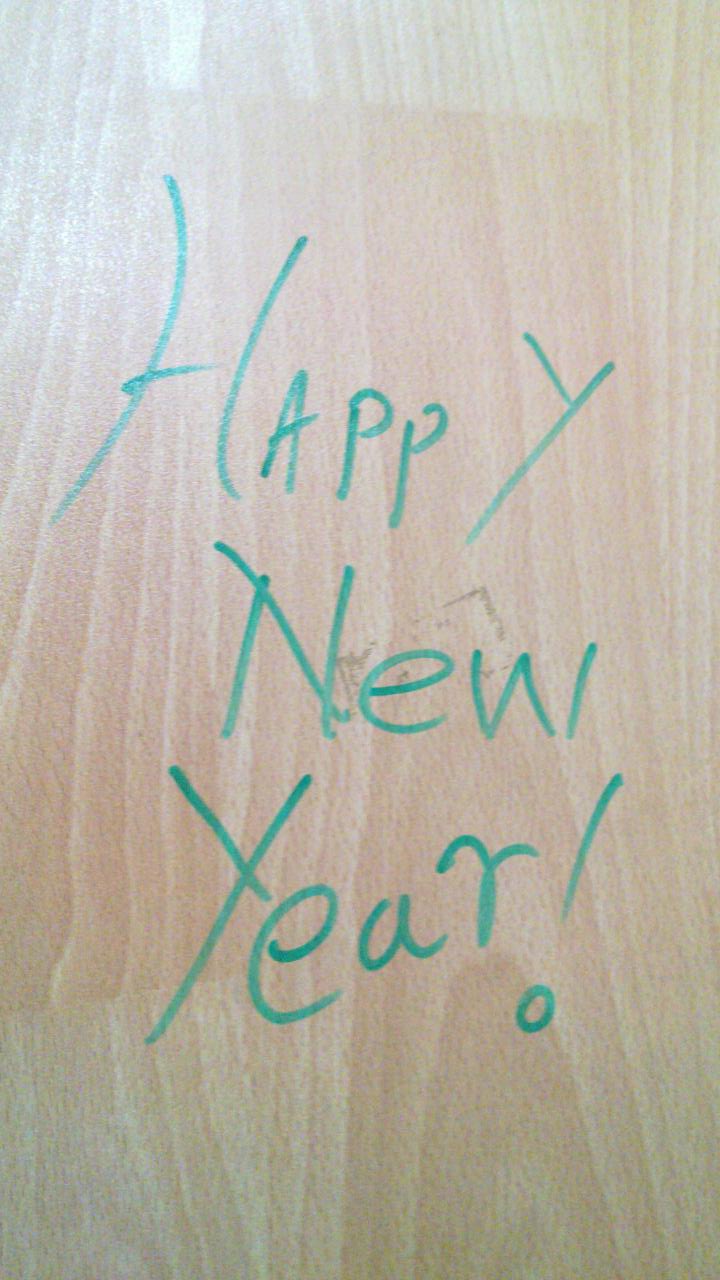 HAppy
New
Year!